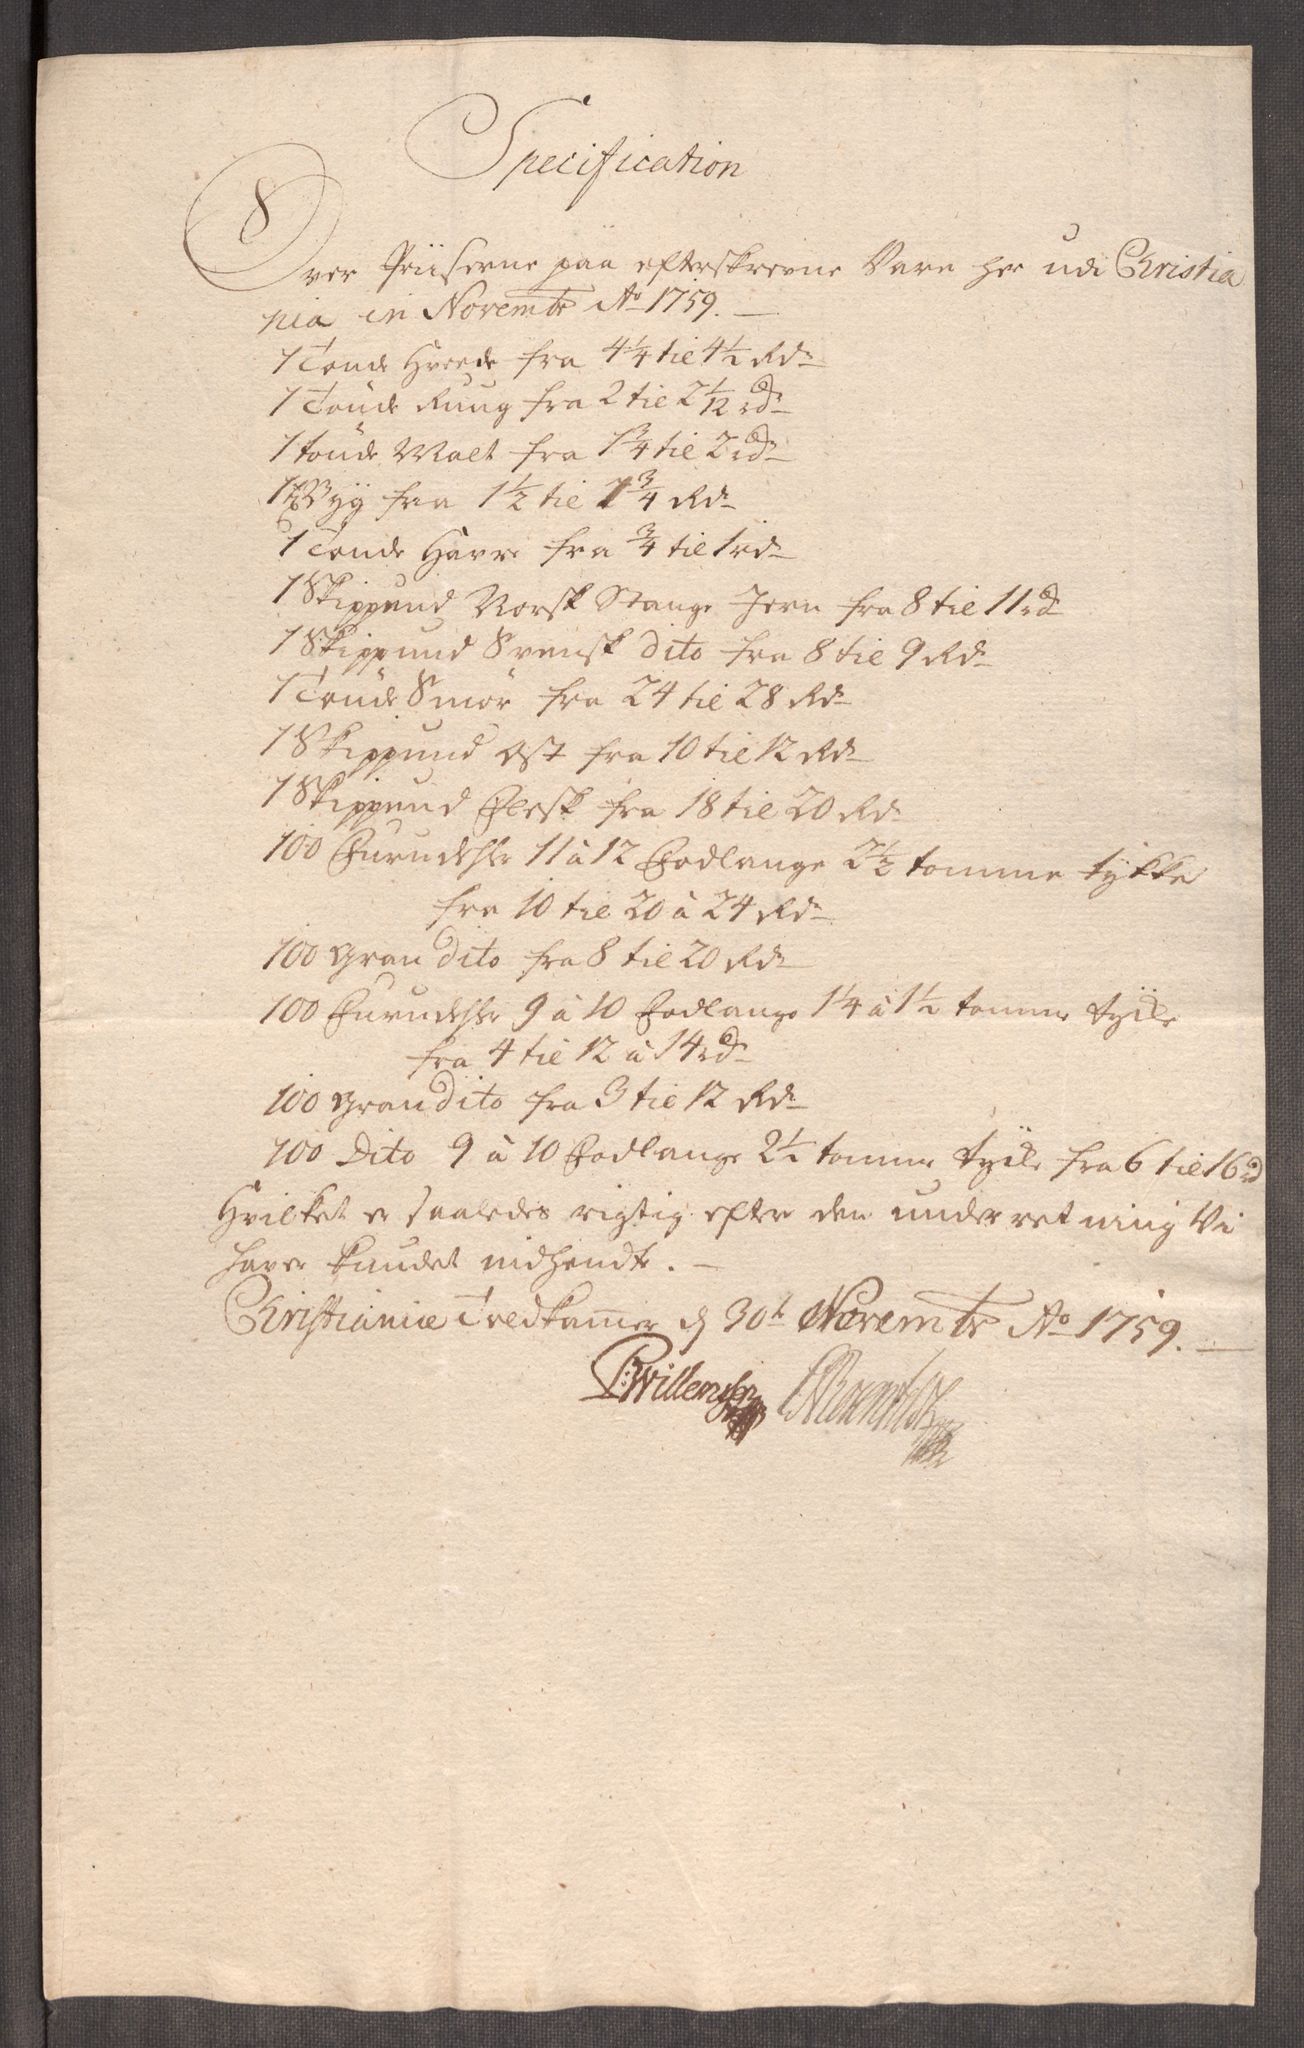 Specification
Over Priiserne paa efterskrevne Vare her udi Christia
nia in Novembr Ao 1759.
1 Tønde Hvede fra 4¼ til 4½ Rdr
1 Tønde Ruug fra 2 til 2 1/12 rdr
1 tønde Malt fra 1¾ til 2 rdr
1 Byg fra 1½ til 1¾ Rdr
1 Tønde Havre fra ¾ til 1 rdr
1 Skippund Norsk Stange Jern fra 8 til 11 rd
1 Skippund Svensk dito fra 8 til 9 Rdr
1 Tønde Smør fra 24 til 28 Rdr
1 Skippund Ost fra 10 til 12 Rdr
1 Skippund Flesk fra 18 til 20 Rdr
100 Furudehler 11 à 12 Fodlange 2½ tomme tykke
fra 10 til 20 à 24 Rdr
100 Gran dito fra 8 til 20 Rdr
100 Furudehler 9 à 10 Fodlange 1¼ à 1½ tomme tycke
fra 4 til 12 à 14 rdr
100 Gran dito fra 3 til 12 Rdr
100 Dito 9 à 10 Fodlange 2½ tomme tycke fra 6 til 16 rd
Hvilket er saaledes rigtig efter den underretning Vi
haver kundet indhendte.
Christianiæ Toldkamer d 30t Novembr Ao 1759.
Willemsen